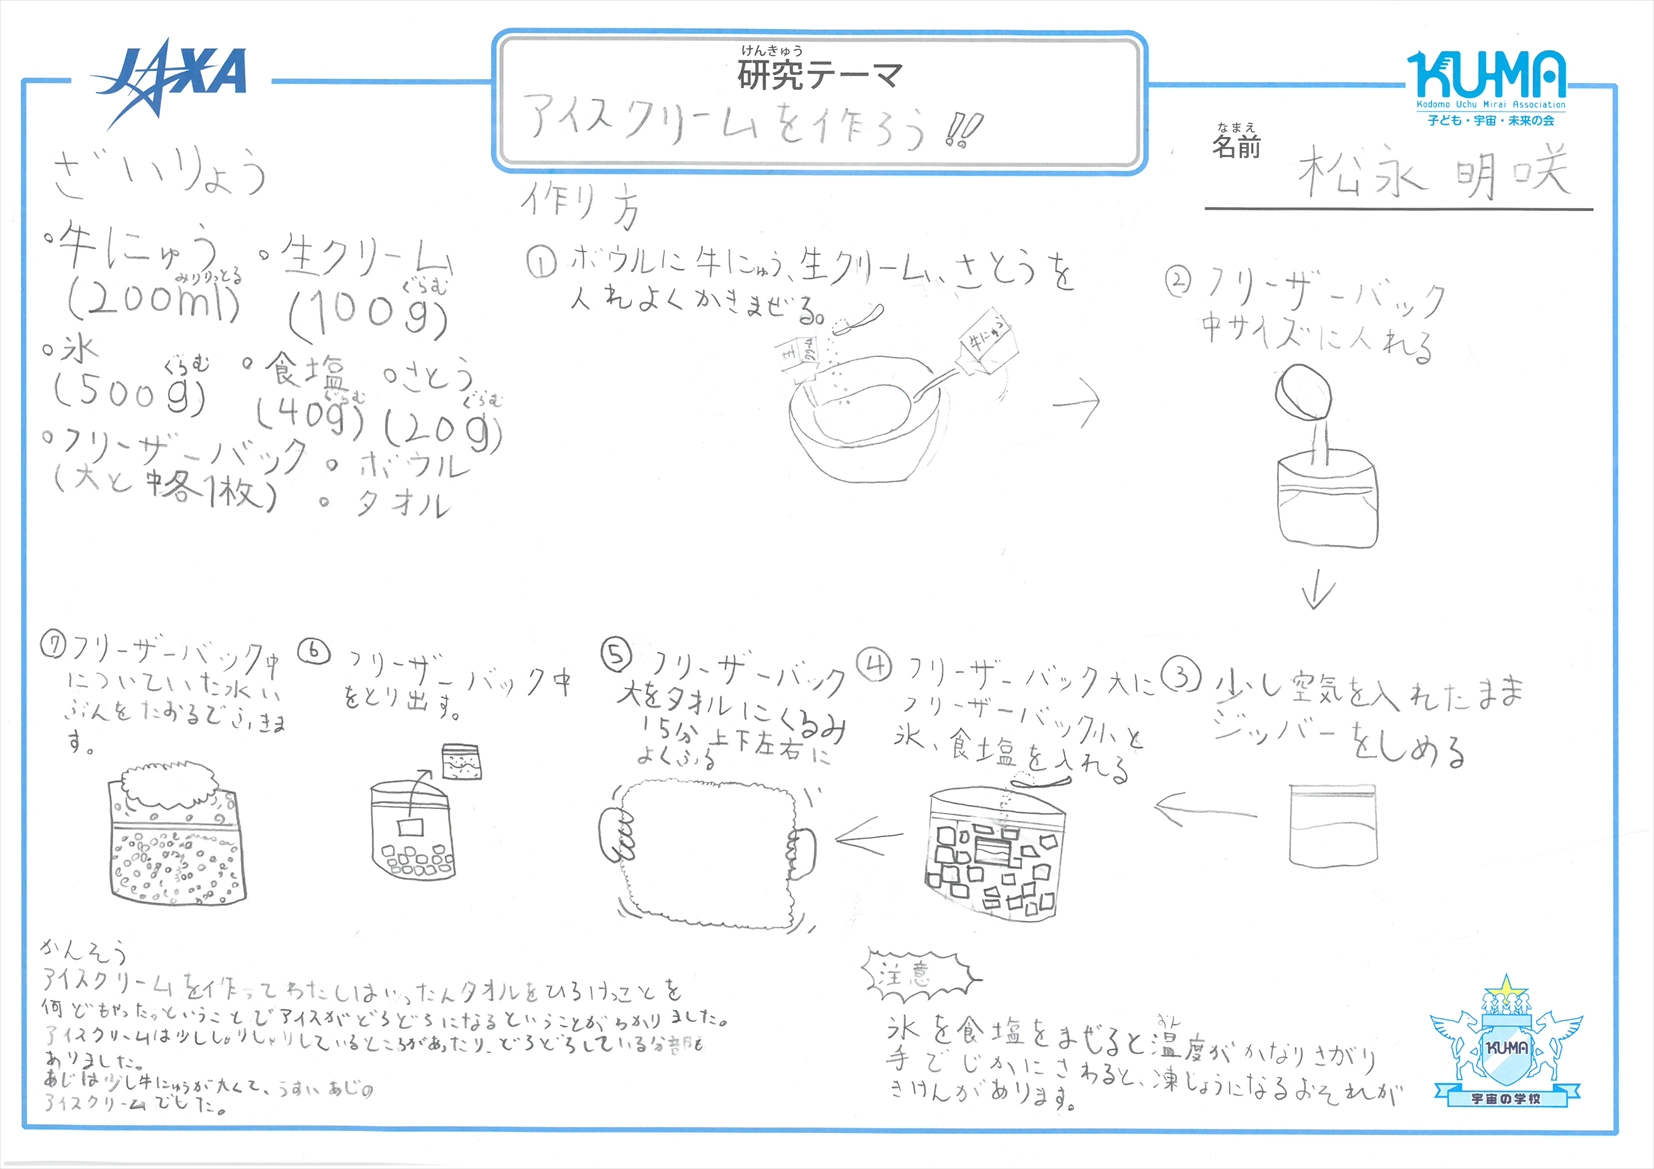 JAXA
けんきゅう
研究テーマ
アイスクリームを作ろう!!
KU-MA
Kodomo Uchu Mirai Association
子ども・宇宙・未来の会
なまえ
名前
松永 明咲
ざいりょう
・牛にゅう ・生クリーム
みりりっとる ぐらむ
(200ml) (100g)
・氷 ・食塩 ・さとう
ぐらむ ぐらむ ぐらむ
(500g) (40g) (20g)
・フリーザーバック ・ボウル
(大と中各1枚) ・タオル
作り方
① ボウルに牛にゅう、生クリーム、さとうを
入れよくかきまぜる。
生クリーム
牛にゅう
② フリーザーバック
中サイズに入れる
③ 少し空気を入れたまま
ジッパーをしめる
④ フリーザーバック大に
フリーザーバック小と
氷、食塩を入れる
⑤ フリーザーバック
大をタオルにくるみ
15分上下左右に
よくふる
⑥ フリーザーバック中
をとり出す。
⑦ フリーザーバック中
についていた水い
ぶんをたおるでふきま
す。
かんそう
アイスクリームを作ってわたしはいったんタオルをひろげっことを
何どもやったっということでアイスがどろどろになるということがわかりました。
アイスクリームは少ししゃりしゃりしているところがあったり、どろどろしている分部も
ありました。
あじは少し牛にゅうが大くて、うすいあじの
アイスクリームでした。
注意
氷を食塩をまぜると温度がかなりさがり
おん
手でじかにさわると、凍じょうになるおそれが
きけんがあります。
KU-MA
宇宙の学校